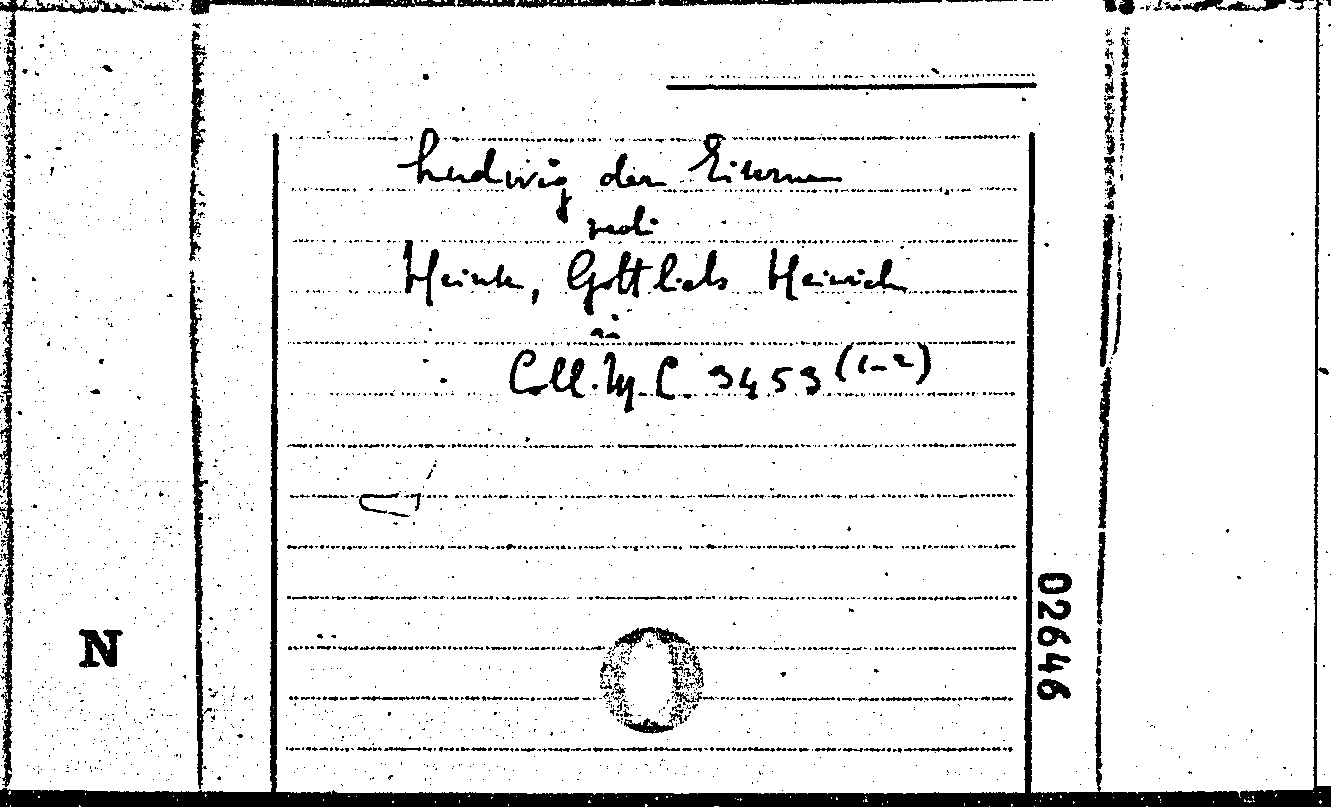 Ludwig der Eiserne
vedi
Heinse, Gottlieb Heinrich
in
Coll. It. C. 3453 (1-2)
N
02646